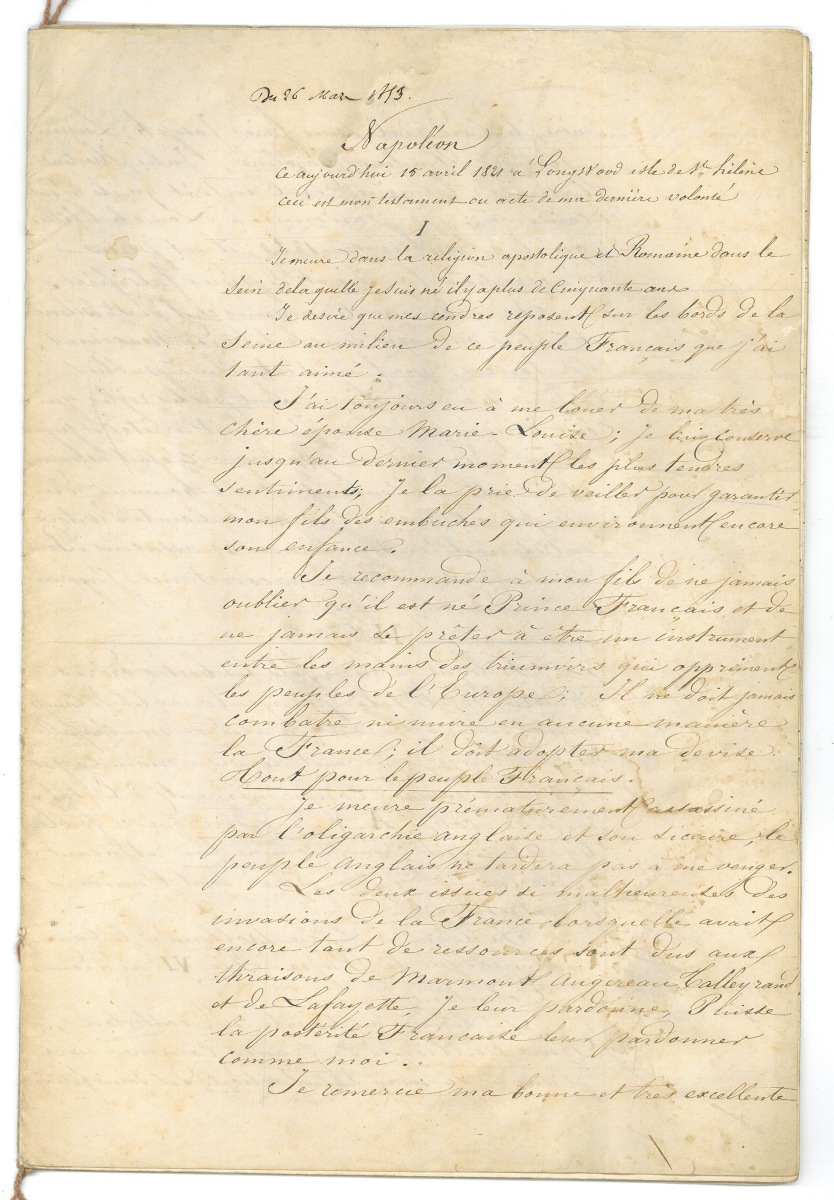 Du 26 Mars 1853.
Napoléon
ce aujourd'hui 15 avril 1821 à Longwood isle de Ste hélène
ceci est mon testament ou acte de ma dernière volonté
I
Je meure dans la religion apostolique et Romaine dans le
sein de laquelle je suis né il y a plus de Cinquante ans
Je desire que mes cendres reposent sur les bords de la
Seine au milieu de ce peuple Français que j'ai
tant aimé.
J'ai toujours eu à me louer de ma très
chère épouse Marie-Louise; Je lui conserve
jusqu'au dernier moment les plus tendres
sentiments; Je la prie de veiller pour garantir
mon fils des embuches qui environnent encore
son enfance.
Je recommande à mon fils de ne jamais
oublier qu'il est né Prince Français et de
ne jamais se prêter à être un instrument
entre les mains des triumvirs qui oppriment
les peuples de l'Europe; Il ne doit jamais
combatre ni nuire en aucune manière
la France; il doit adopter ma devise:
Tout pour le peuple Français.
Je meure prématurement assassiné
par l'oligarchie anglaise et son sicaire, le
peuple Anglais ne tardera pas a me venger.
Les deux issues si malheureuses des
invasions de la France lorsquelle avait
encore tant de ressources sont dus aux
thraisons de Marmont Augereau, Talleyrand
et de Lafayette, Je leur pardonne, Puisse
la postérité Francaise leur pardonner
comme moi.
Je remercie ma bonne et très excellente